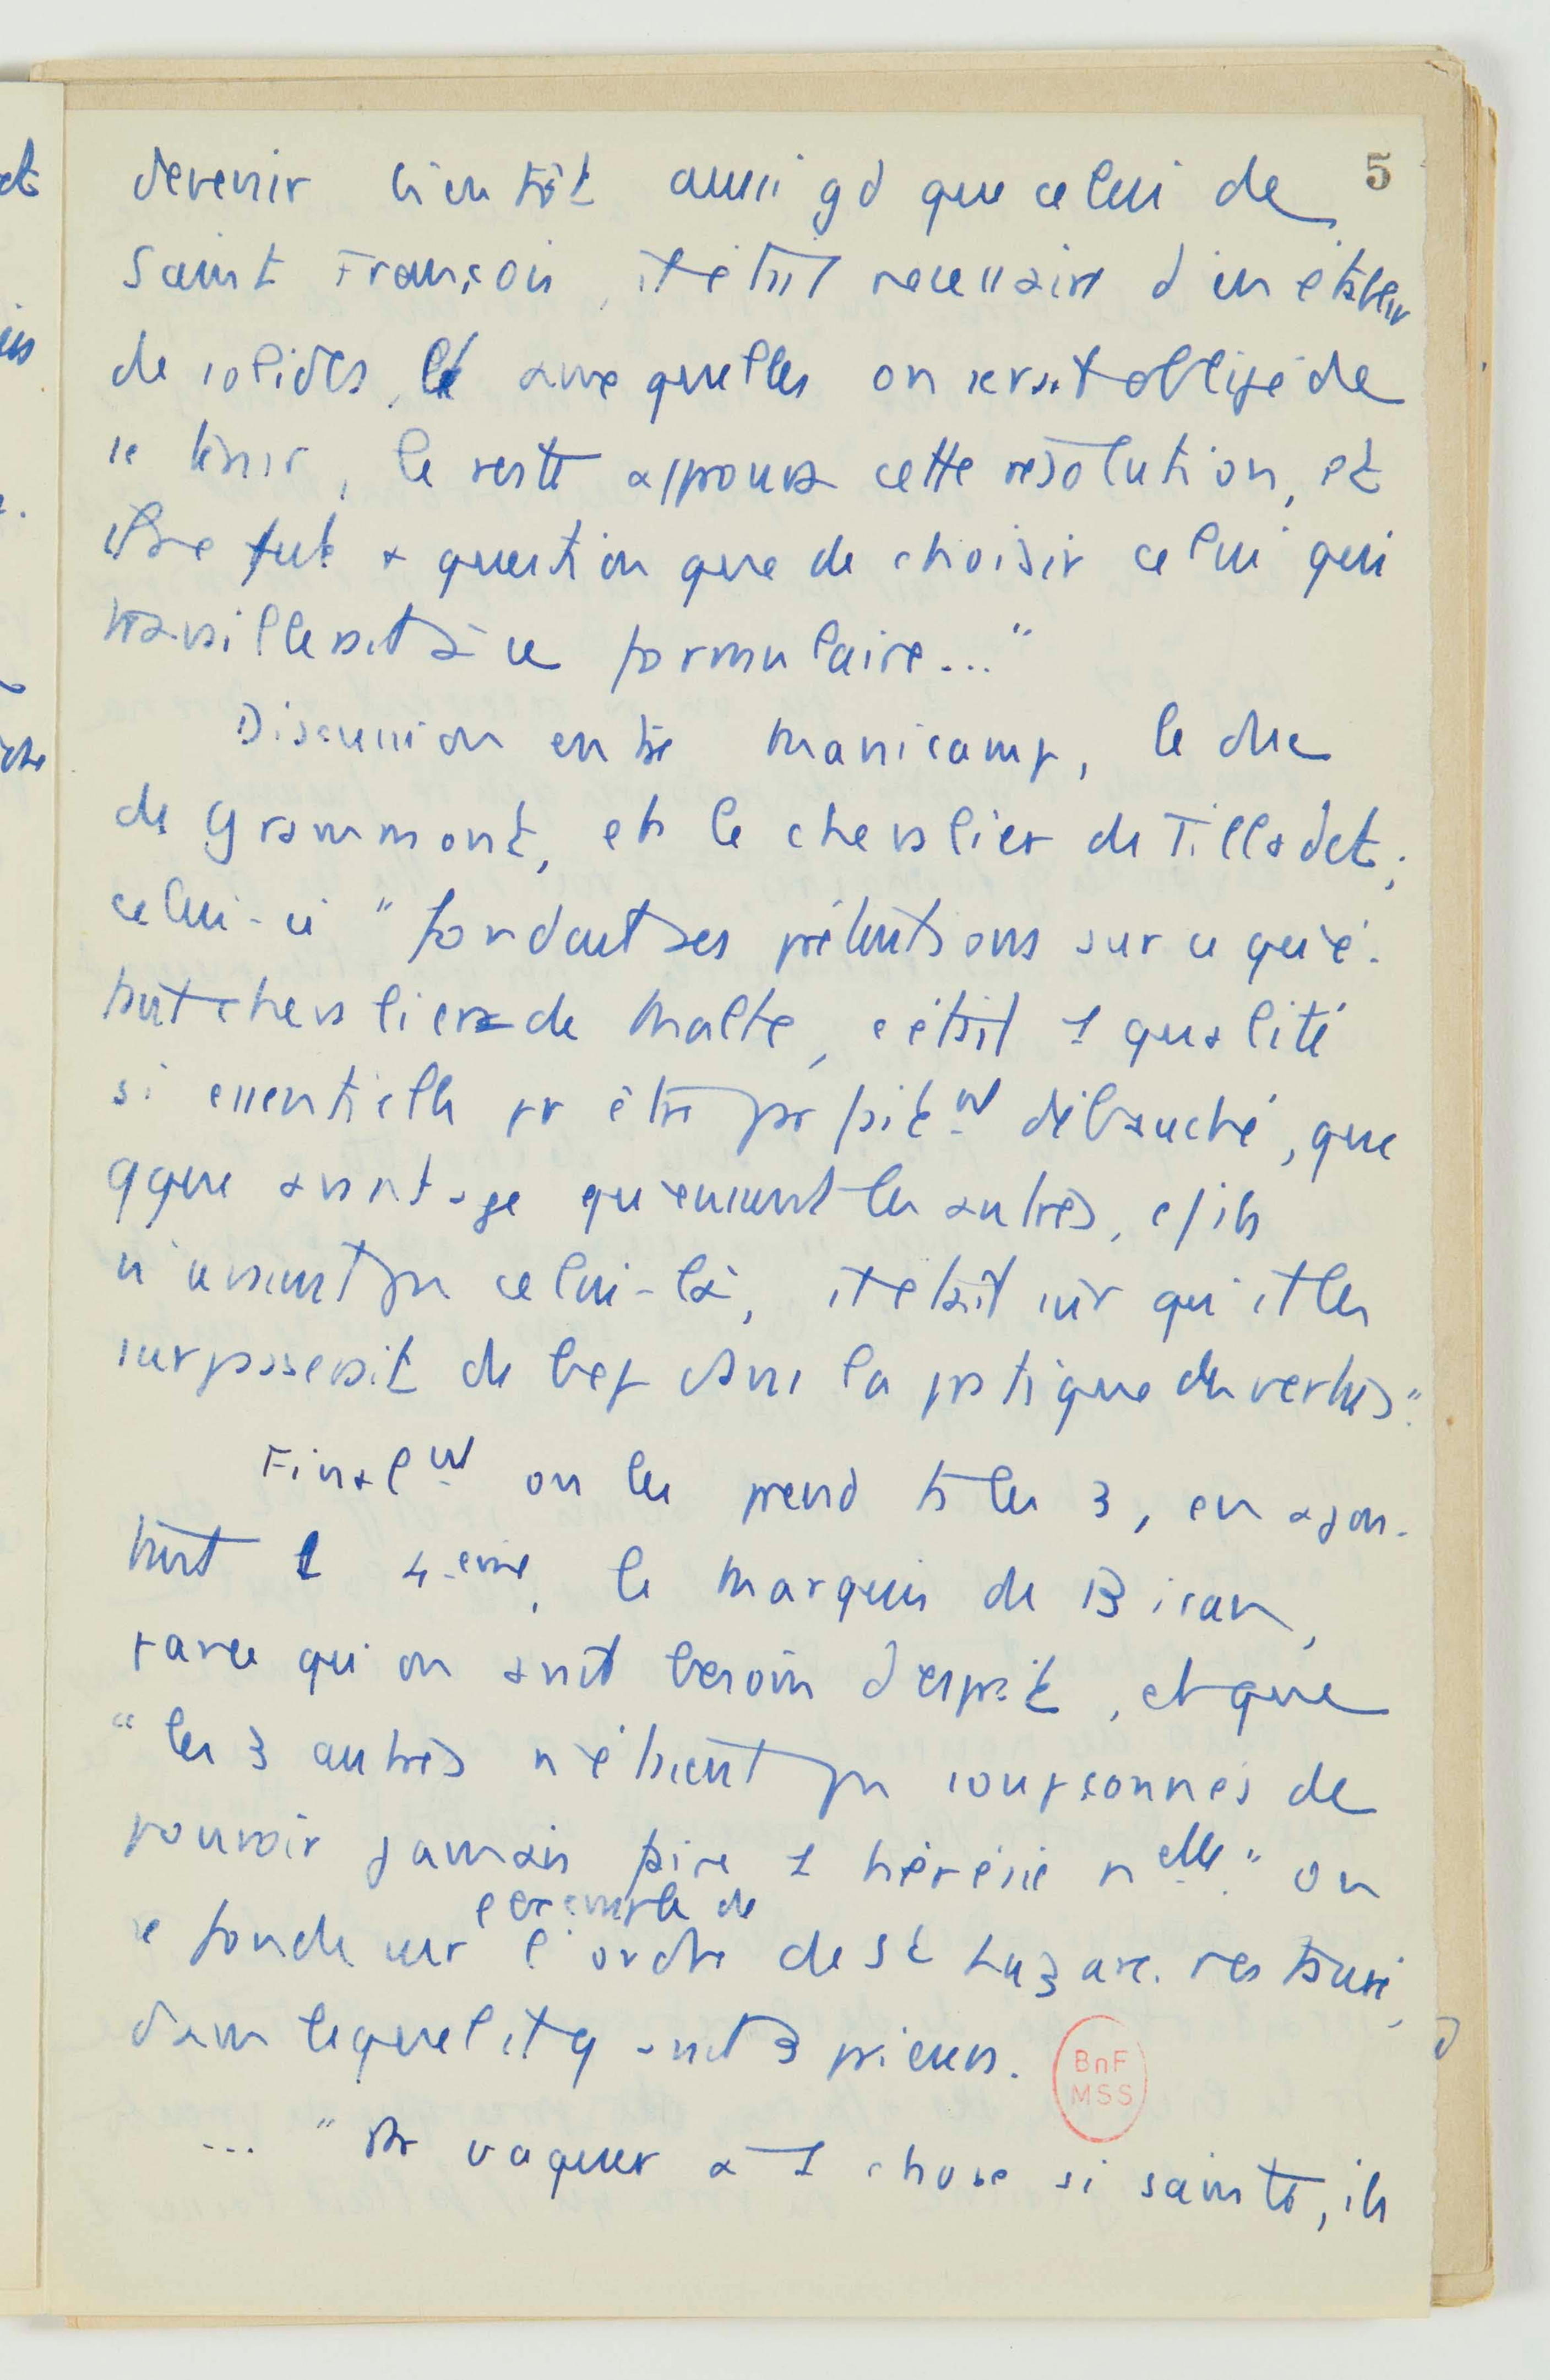 5
devenir bientôt aussi gd que celui de
Saint François, il était nécessaire d'en établir
de solides, auxquelles on serait obligé de
se tenir, le reste approuva cette résolution, et
il ne fut + question que de choisir celui qui
travaillerait à ce formulaire..."
Discussion entre Manicamp, le duc
de Grammont, et le chevalier de Tilladet;
celui-ci "fondant ses prétentions sur ce qu'é-
tant chevalier de Malte, c'était 1 qualité
si essentielle pr être parfaitmt débauché, que
qque avantage qu'eussent les autres, c/ ils
n'avaient pas celui-là, il était sûr qu'il les
surpasserait de bcp dans la pratique des vertus".
Finalmt on les prend ts les 3, en ajou-
tant 1 4-eme, le Marquis de Biran,
parce qu'on avait besoin d'esprit, et que
"les 3 autres n'étaient pas soupçonnés de
pouvoir jamais faire 1 hérésie nelle." on
se fonde sur l'exemple de l'ordre de St Lazare restauré,
dans lequel il y avait 3 prieurs.
BnF
MSS
... "Pr vaquer à 1 chose si sainte, ils